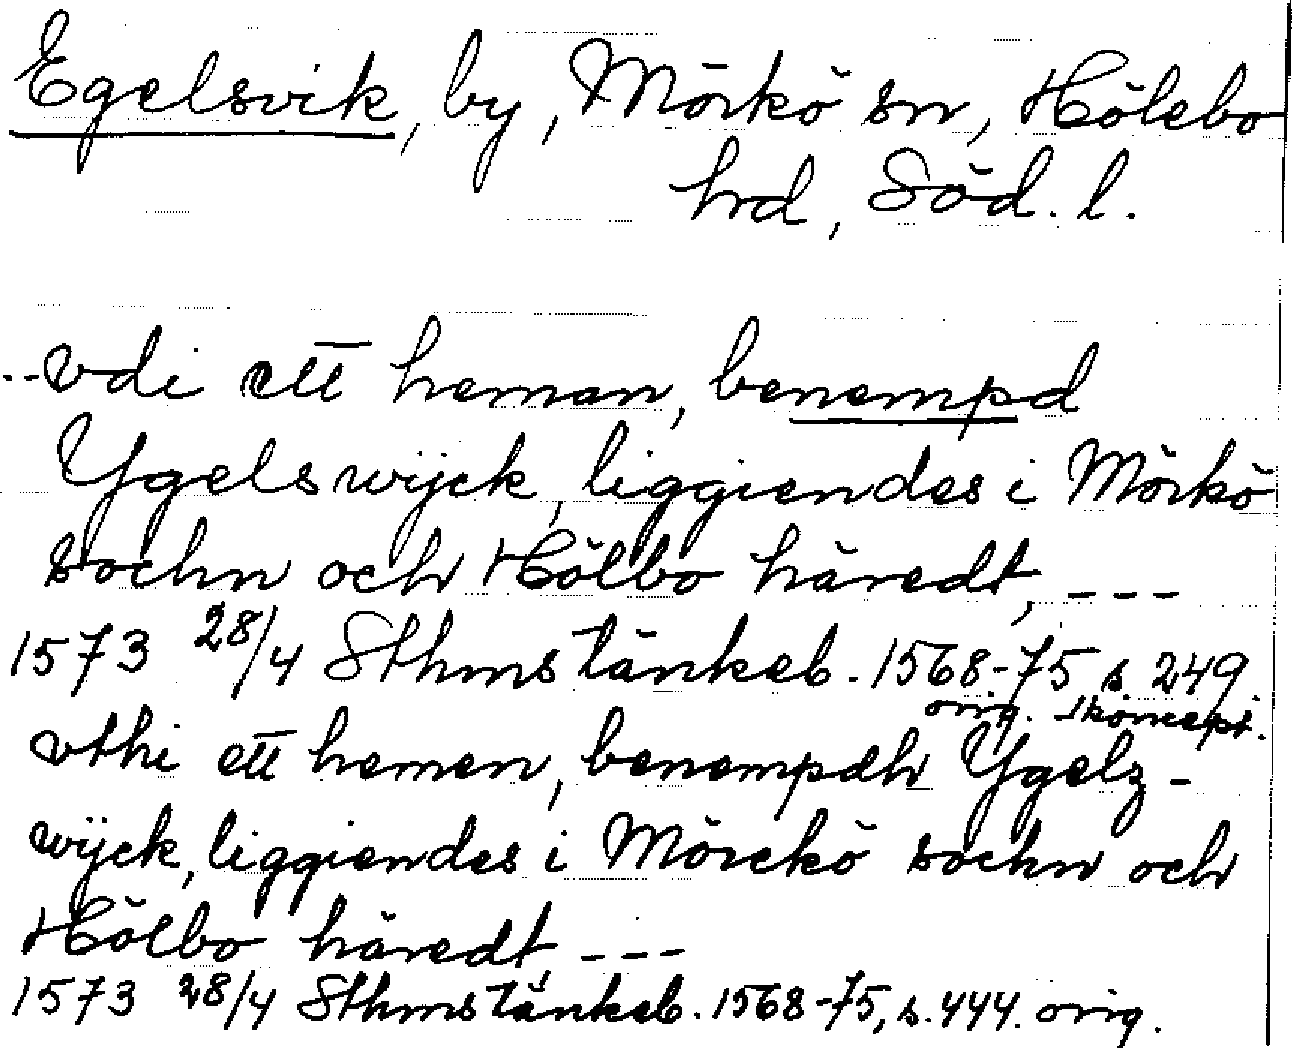 Egelsvik, by, Mörkö sn, Hölebo
hrd, Söd. l.
--vdi ett heman, benempd
Ygelswijck, liggiendes i Mörkö
sochn och Hölbo häredt, ---
1573 28/4 Sthms tänkeb. 1568-75 s. 249.
orig.
vthi ett hemen, benempdh Ygelz-
wijck, liggiendes i Mörckö sochn och
Hölbo häredt, ---
1573 28/4 Sthms tänkeb. 1568-75, s. 444. orig.